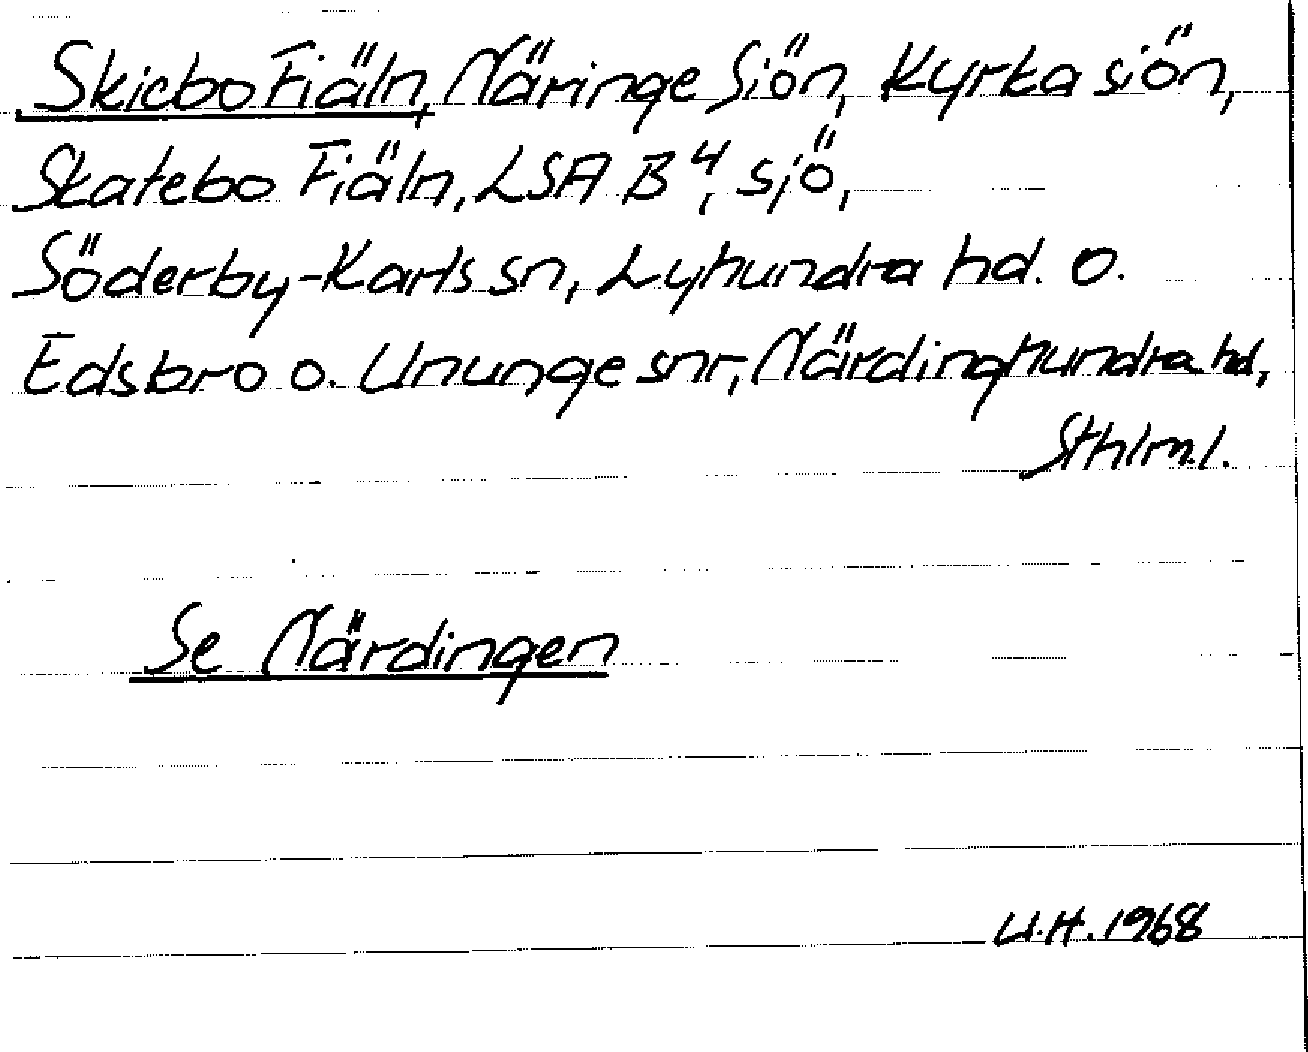 Skicbo Fiäln, Näringe Siön, Kyrka siön,
Skatebo Fiäln, LSA B⁴, sjö,
Söderby-Karls sn, Lyhundra hd. o.
Edsbro o. Ununge snr, Närdinghundra hd,
Sthlm.l.
Se Närdingen
U.H. 1968